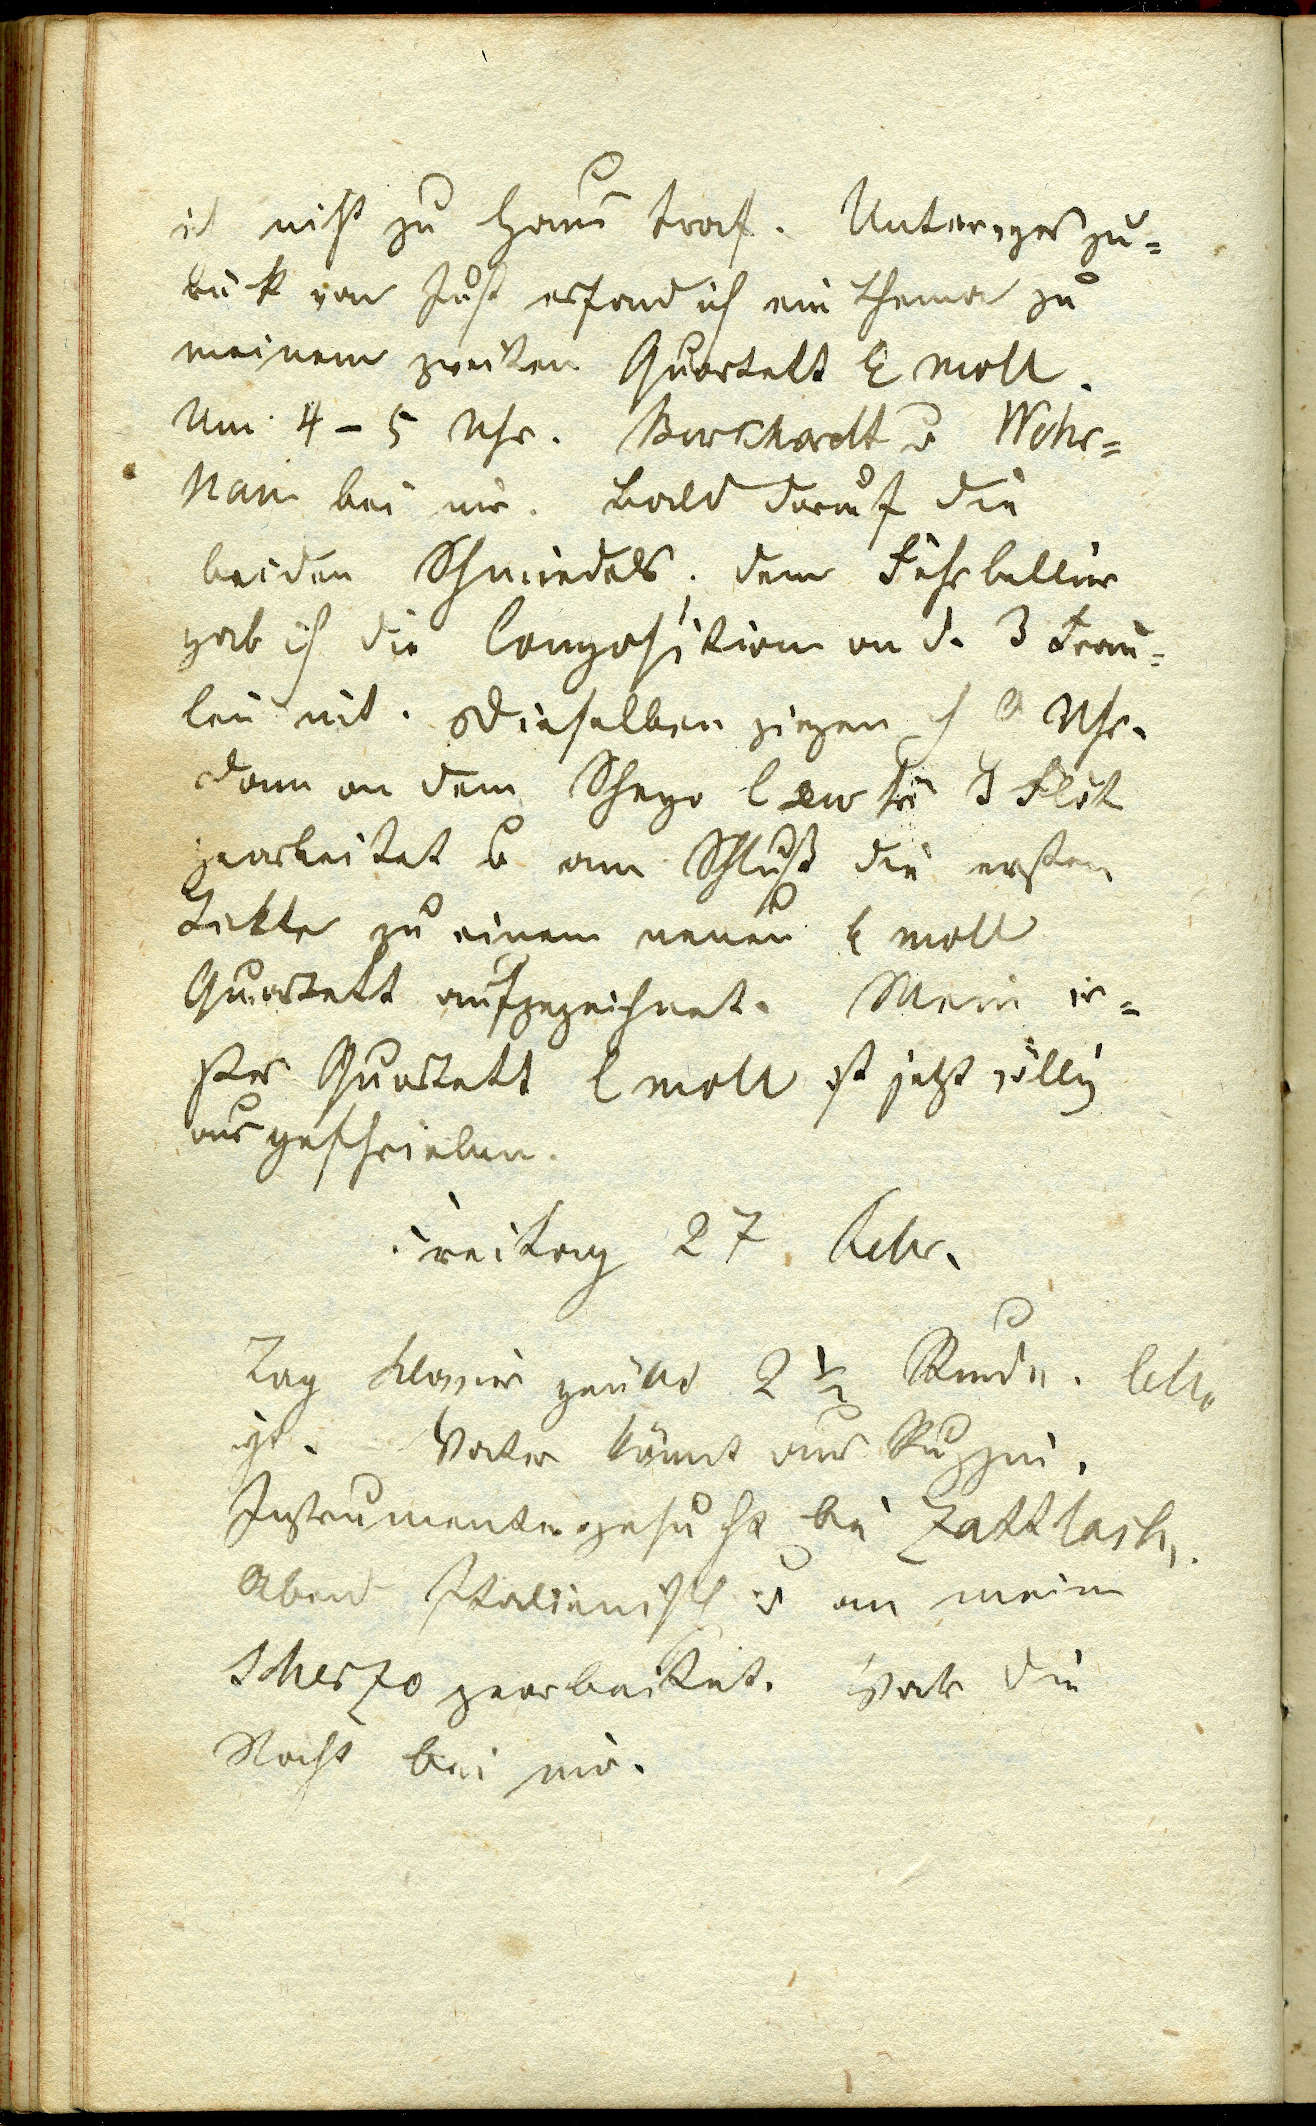 ich nicht zu Haus traf. Unterwegs zu=
rück von Just erfand ich ein Thema zu
meinem zweiten Quartett E moll.
Um 4 – 5 Uhr. Burckhardt u Wehr=
Nam bei mir. Bald darauf die
beiden Schmiedels, dem Fehrbellin
gab ich die Composition an d. 3 Fräu=
lein mit. Dieselben gingen Uhr.
Dann an dem für 3 Flöt
gearbeitet u am Schluß die ersten
Takte zu einem neuen E moll
Quartett aufgezeichnet. Mein er=
stes Quartett C moll ist jetzt völlig
ausgeschrieben.
Freitag 27. Febr.
Tag Klavier geübt 2 ½ Stunde.
Vater kömt aus
Instrumente gesucht bei
Abend Italienisch u an mein
Scherzo gearbeitet. Vater die
Nacht bei mir.